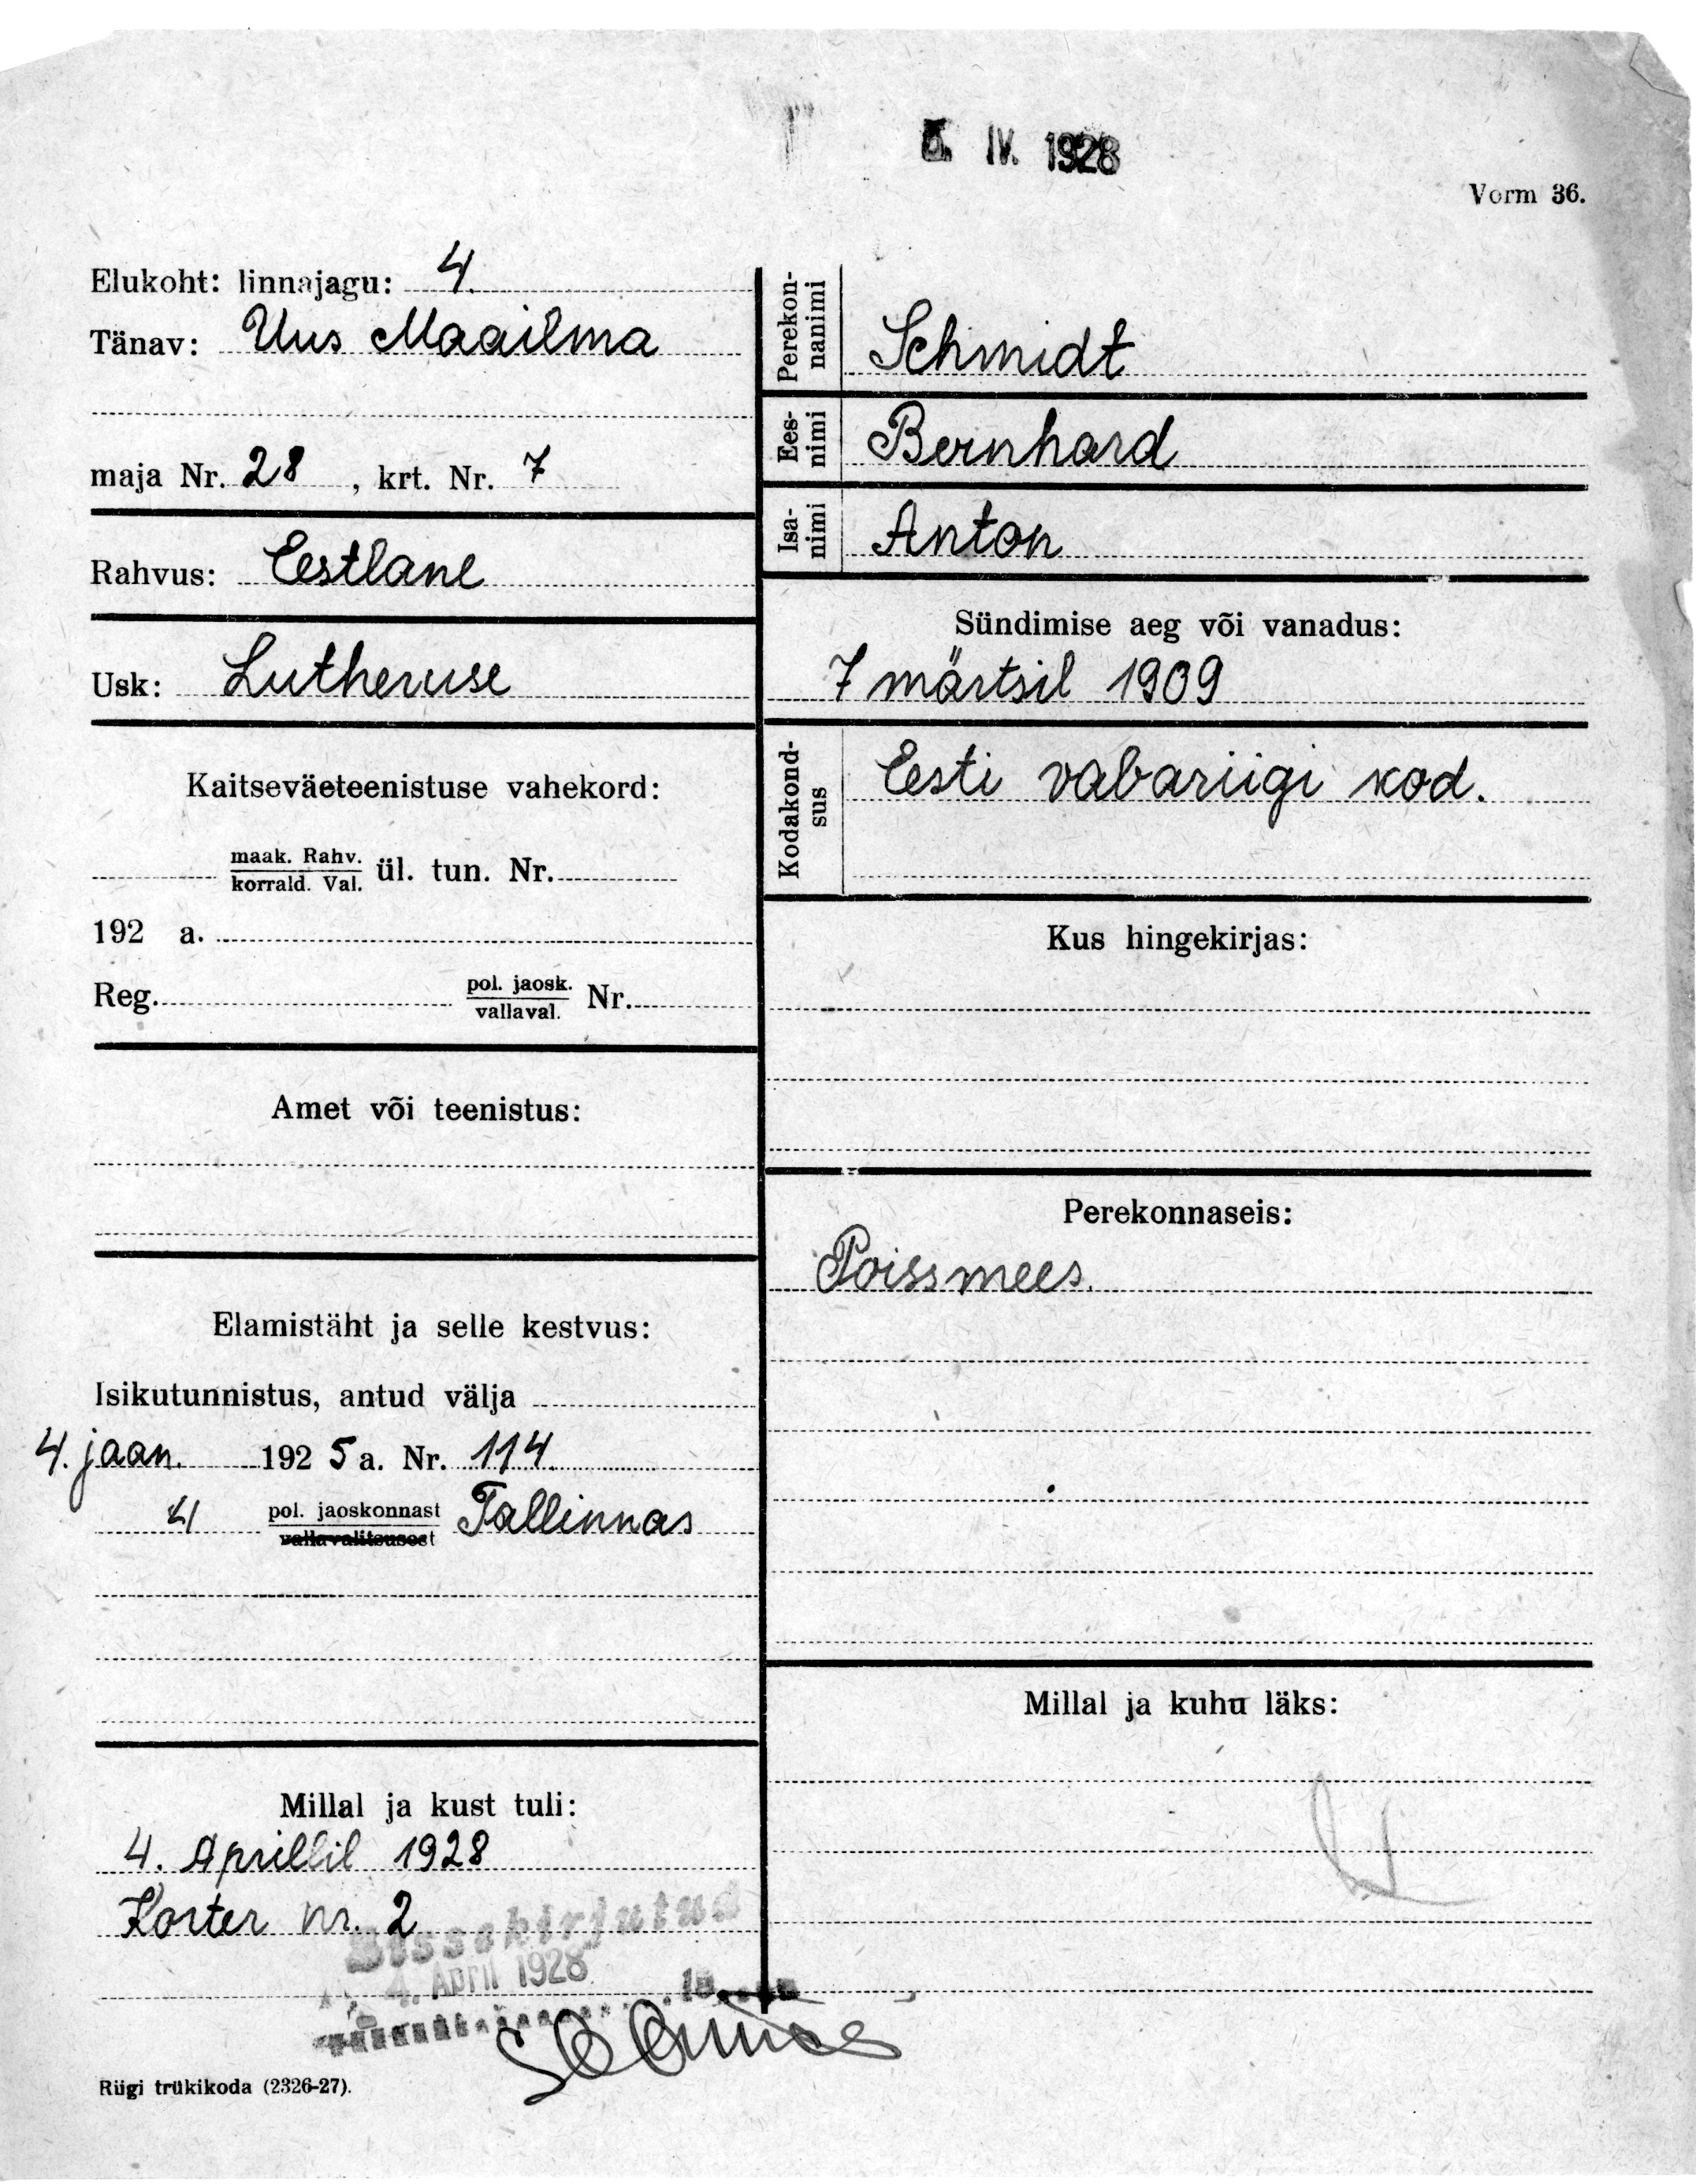 5. IV. 1928
Vorm 36.
Elukoht: linnajagu: 4.
Tänav: Uus Maailma
maja Nr. 28, krt. Nr. 7
Rahvus: Eestlane
Usk: Lutheruse
Kaitseväeteenistuse vahekord:
maak. Rahv.
korrald. Val. ül. tun. Nr.
192 a.
Reg. pol. jaosk.
vallaval. Nr.
Amet või teenistus:
Elamistäht ja selle kestvus:
Isikutunnistus, antud välja
4. jaan. 1925 a. Nr. 114.
4 pol. jaoskonnast Tallinnas
vallavalitsusest
Millal ja kust tuli:
4. Aprillil 1928
Korter nr. 2
Sissekirjutud
4. April 1928
Riigi trükikoda (2326-27).
Perekon-
nanimi
Schmidt
Ees-
nimi
Bernhard
Isa-
nimi
Anton
Sündimise aeg või vanadus:
7 märtsil 1909
Kodakond-
sus
Eesti vabariigi kod.
Kus hingekirjas:
Perekonnaseis:
Poissmees.
Millal ja kuhu läks: